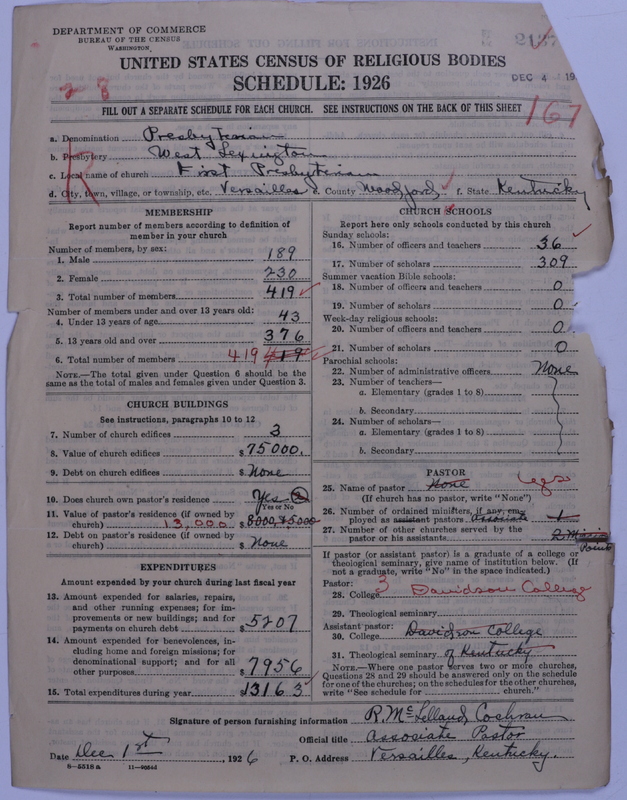 DEPARTMENT OF COMMERCE
BUREAU OF THE CENSUS
WASHINGTON
DEC 4
UNITED STATES CENSUS OF RELIGIOUS BODIES
SCHEDULE: 1926
FILL OUT A SEPARATE SCHEDULE FOR EACH CHURCH. SEE INSTRUCTIONS ON THE BACK OF THIS SHEET
167
a. Denomination Presbyterian
b. Presbytery West Lexington
c. Local name of church First Presbyterian
d. City, town, village, or township, etc. Versailles e. County Woodford f. State Kentucky
R
MEMBERSHIP
Report number of members according to definition of member in your church
Number of members, by sex:
1. Male 189
2. Female 230
3. Total number of members 419
Number of members under and over 13 years old:
4. Under 13 years of age 43
5. 13 years old and over 376
6. Total number of members 419 419
NOTE.—The total given under Question 6 should be the same as the total of males and females given under Question 3.
CHURCH BUILDINGS
See instructions, paragraphs 10 to 12
7. Number of church edifices 3
8. Value of church edifices $75000.
9. Debt on church edifices $None
10. Does church own pastor's residence Yes 2
Yes or No
11. Value of pastor's residence (if owned by church) 13,000 $8000, $5000
12. Debt on pastor's residence (if owned by church) $None
EXPENDITURES
Amount expended by your church during last fiscal year
13. Amount expended for salaries, repairs, and other running expenses; for improvements or new buildings; and for payments on church debt $5207
14. Amount expended for benevolences, including home and foreign missions; for denominational support; and for all other purposes $7956
15. Total expenditures during year $13163
CHURCH SCHOOLS
Report here only schools conducted by this church
Sunday schools:
16. Number of officers and teachers 36
17. Number of scholars 309
Summer vacation Bible schools:
18. Number of officers and teachers 0
19. Number of scholars 0
Week-day religious schools:
20. Number of officers and teachers 0
21. Number of scholars 0
Parochial schools:
22. Number of administrative officers None
23. Number of teachers—
a. Elementary (grades 1 to 8)
b. Secondary
24. Number of scholars—
a. Elementary (grades 1 to 8)
b. Secondary
PASTOR
25. Name of pastor None
(If church has no pastor, write "None")
26. Number of ordained ministers, if any, employed as assistant pastors Associate 1
27. Number of other churches served by the pastor or his assistants 2 Mission
Points
If pastor (or assistant pastor) is a graduate of a college or theological seminary, give name of institution below. (If not a graduate, write "No" in the space indicated.)
Pastor:
28. College 3 Davidson College
29. Theological seminary
Assistant pastor:
30. College Davidson College
31. Theological seminary of Kentucky
NOTE.—Where one pastor serves two or more churches, Questions 28 and 29 should be answered only on the schedule for one of the churches; on the schedules for the other churches, write "See schedule for church."
Signature of person furnishing information R. McLelland Cochran
Official title Associate Pastor
Date Dec 1st, 1926 P. O. Address Versailles, Kentucky.
8—5518 a